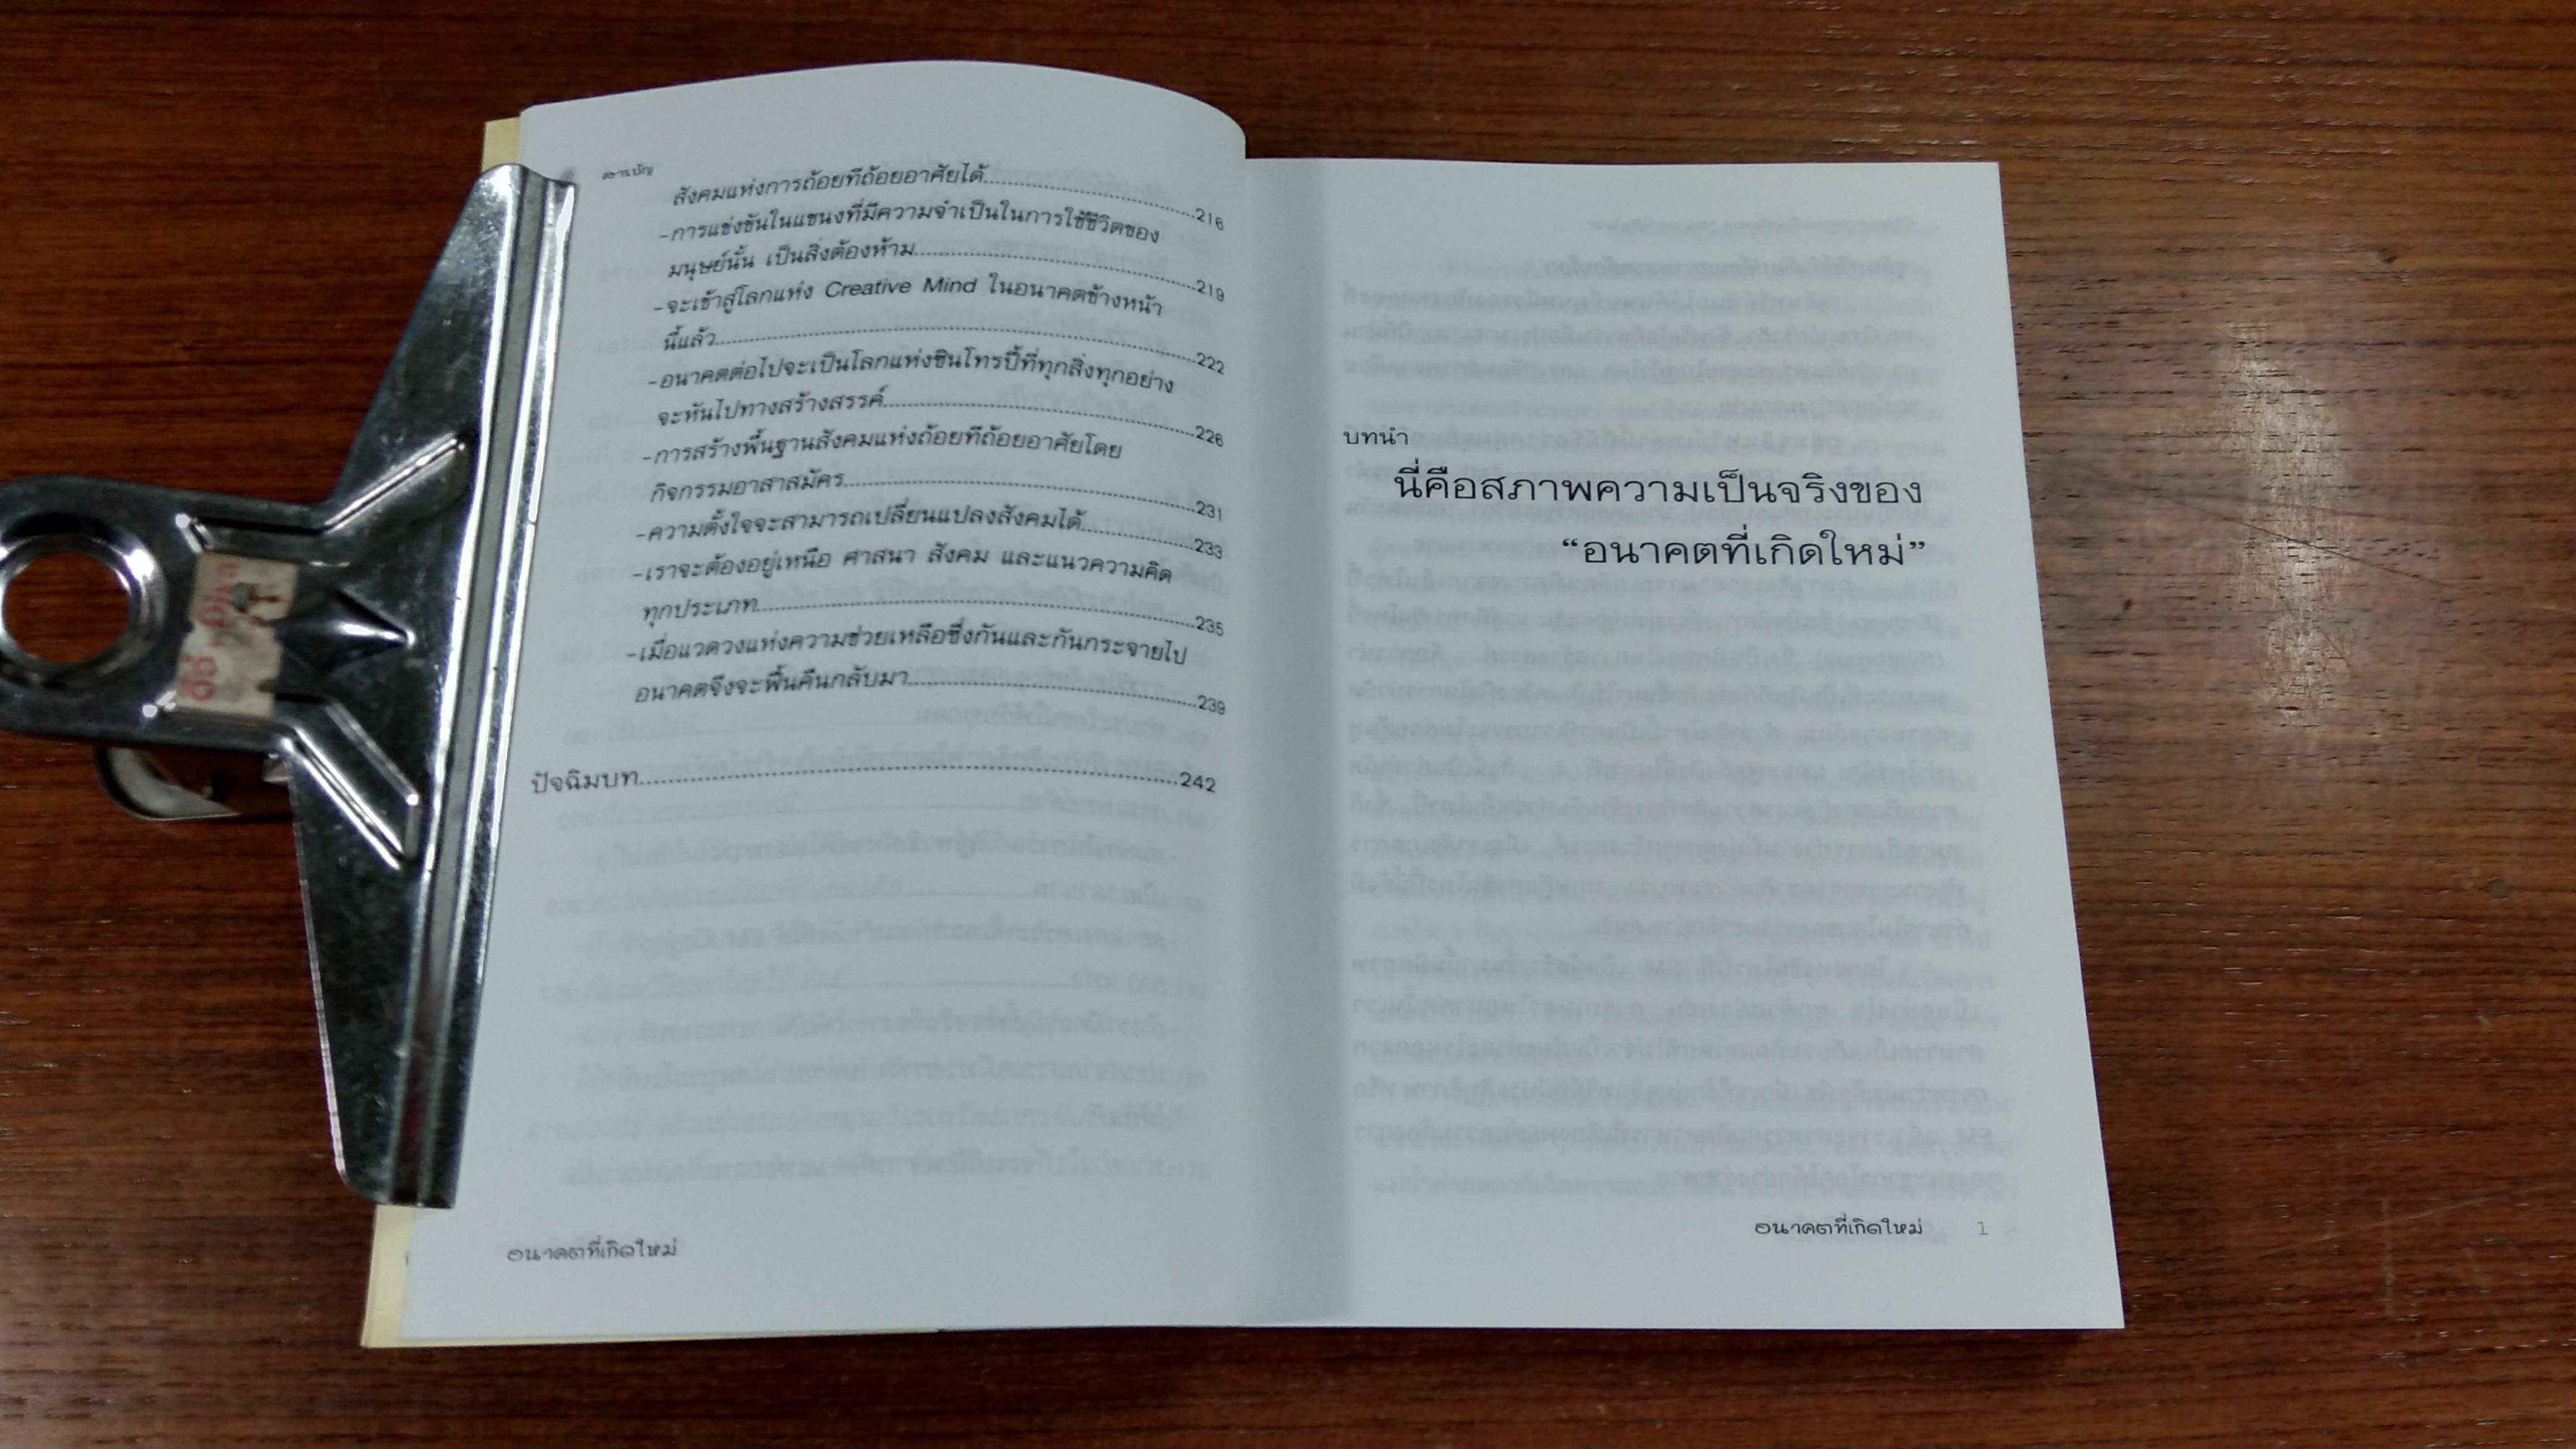 สารบัญ
สังคมแห่งการถ้อยทีถ้อยอาศัยได้..............................216
-การแข่งขันในแขนงที่มีความจำเป็นในการใช้ชีวิตของ
มนุษย์นั้น เป็นสิ่งต้องห้าม..............................219
-จะเข้าสู่โลกแห่ง Creative Mind ในอนาคตข้างหน้า
นี้แล้ว..............................222
-อนาคตต่อไปจะเป็นโลกแห่งซินโทรปี้ที่ทุกสิ่งทุกอย่าง
จะหันไปทางสร้างสรรค์..............................226
-การสร้างพื้นฐานสังคมแห่งถ้อยทีถ้อยอาศัยโดย
กิจกรรมอาสาสมัคร..............................231
-ความตั้งใจจะสามารถเปลี่ยนแปลงสังคมได้..............................233
-เราจะต้องอยู่เหนือ ศาสนา สังคม และแนวความคิด
ทุกประเภท..............................235
-เมื่อแวดวงแห่งความช่วยเหลือซึ่งกันและกันกระจายไป
อนาคตจึงจะฟื้นคืนกลับมา..............................239
ปัจฉิมบท..............................242
อนาคตที่เกิดใหม่
บทนำ
นี่คือสภาพความเป็นจริงของ
“อนาคตที่เกิดใหม่”
อนาคตที่เกิดใหม่ 1